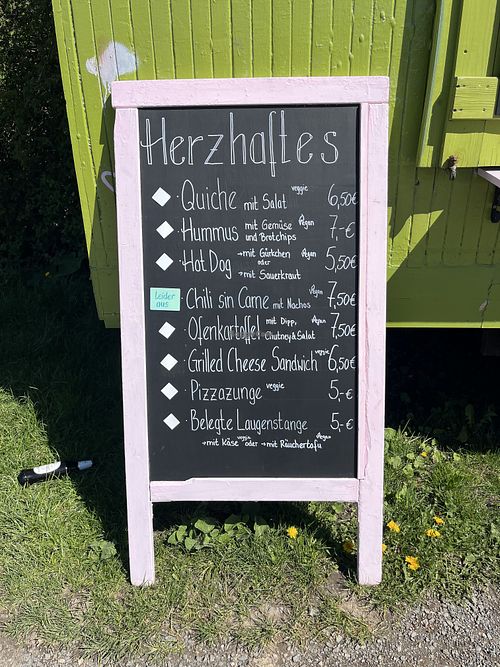 Herzhaftes
Quiche mit Salat veggie 6,50€
Hummus mit Gemüse Vegan 7,-€
und Brotchips
Hot Dog →mit Gürkchen Vegan 5,50€
oder
→mit Sauerkraut
Leider aus
Chili sin Carne mit Nachos Vegan 7,50€
Ofenkartoffel mit Dipp, Vegan 7,50€
Chutney & Salat
Grilled Cheese Sandwich veggie 6,50€
Pizzazunge veggie 5,-€
Belegte Laugenstange 5,-€
→mit Käse veggie oder →mit Räuchertofu Vegan